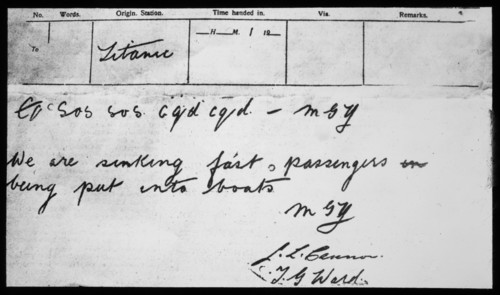 No. Words. Origin. Station. Time handed in. Via. Remarks.
To Titanic H. M. 19
SOS SOS. cqd cqd. – MGY
We are sinking fast, passengers
being put into boats
MGY
T G Ward.